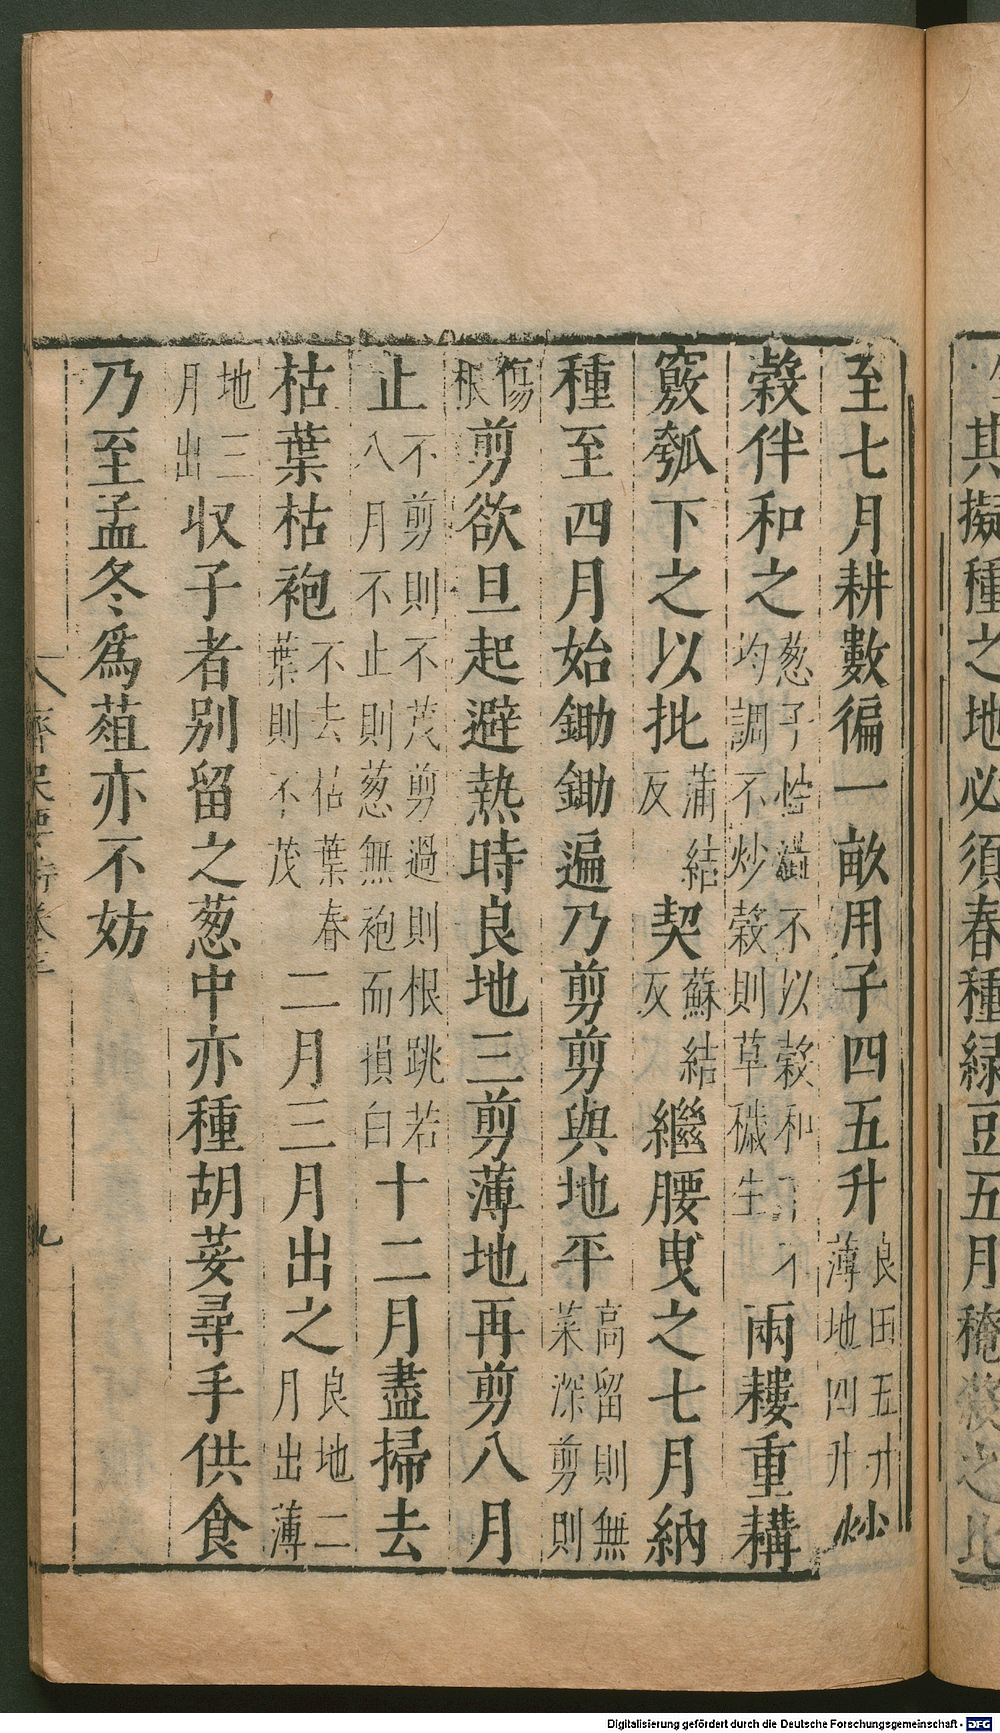 至七月耕數徧一畝用子四五升良田五升薄地四升炒
穀伴和之葱子性澁不以穀和下不均調不炒穀則草穢生兩耬重耩
竅瓠下之以批蒲結反契蘇結反繼腰曳之七月納
種至四月始鋤鋤遍乃剪剪與地平高留則無菜深剪則
傷根剪欲旦起避熱時良地三剪薄地再剪八月
止不剪則不茂剪過則根跳若八月不止則葱無袍而損白十二月盡掃去
枯葉枯袍不去枯葉春葉則不茂二月三月出之良地二月出薄
地三月出収子者别留之葱中亦種胡荽尋手供食
乃至孟冬爲葅亦不妨
齊民要術卷三
九
其擬種之地必須春種緑豆五月𥻦殺之比
Digitalisierung gefördert durch die Deutsche Forschungsgemeinschaft - DFG